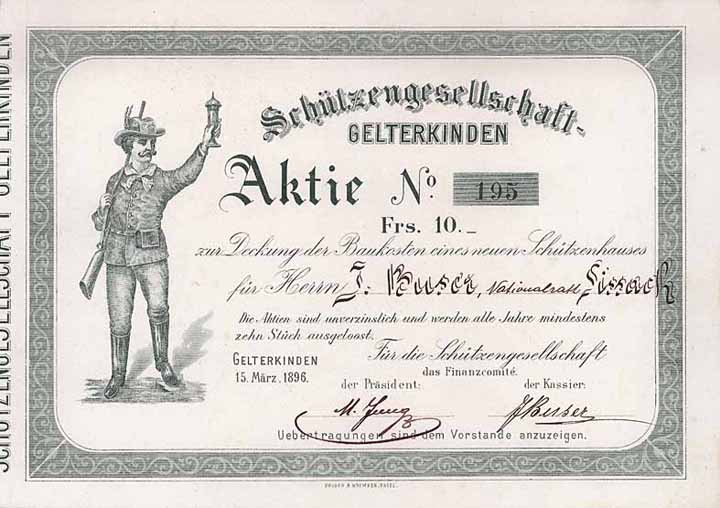 SCHÜTZENGESELLSCHAFT GELTERKINDEN
Schützengesellschaft
GELTERKINDEN
Aktie No. 195
Frs. 10._
zur Deckung der Baukosten eines neuen Schützenhauses
für Herrn J. Buser, Nationalrath Sissach
Die Aktien sind unverzinslich und werden alle Jahre mindestens
zehn Stück ausgeloost.
Für die Schützengesellschaft
GELTERKINDEN
15. März. 1896.
das Finanzcomité.
der Präsident:
der Kassier:
M. Jung
J Busser
Uebertragungen sind dem Vorstande anzuzeigen.